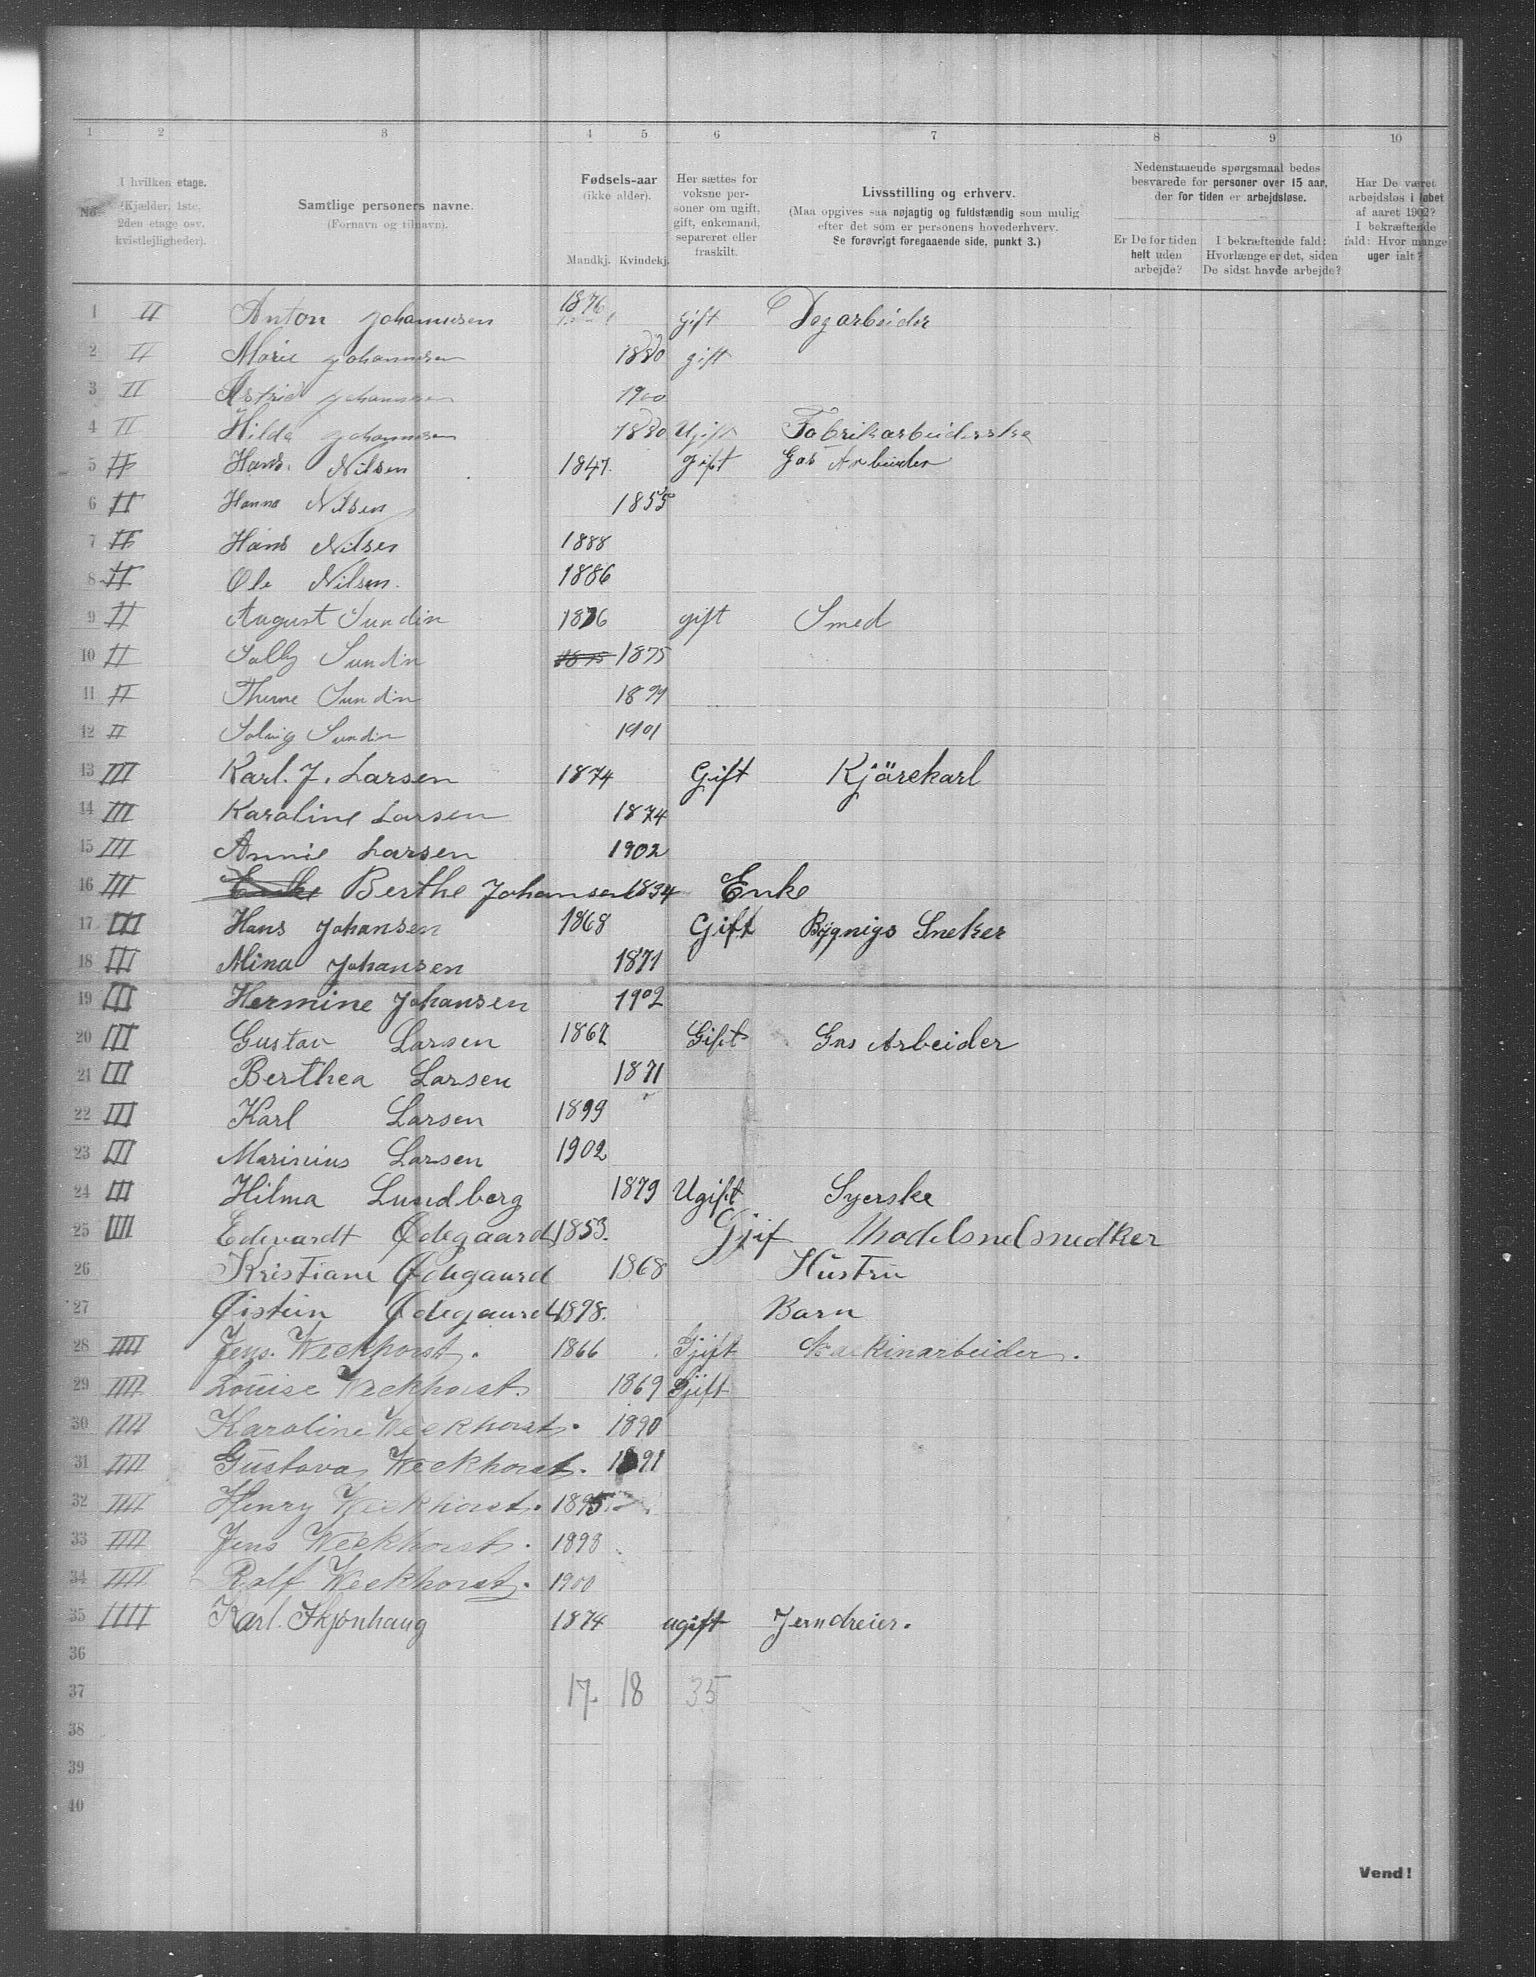 1 2 3 4 5 6 7 8 9 10
No. I hvilken etage. (Kjælder, 1ste, 2den etage osv. kvistlejligheder).
Samtlige personers navne. (Fornavn og tilnavn).
Fødsels-aar (ikke alder). Mandkj. Kvindekj.
Her sættes for voksne personer om ugift, gift, enkemand, separeret eller fraskilt.
Livsstilling og erhverv. (Maa opgives saa nøjagtig og fuldstændig som mulig efter det som er personens hovederhverv. Se forøvrigt foregaaende side, punkt 3.)
Nedenstaaende spørgsmaal bedes besvarede for personer over 15 aar, der for tiden er arbejdsløse.
Er De for tiden helt uden arbejde?
I bekræftende fald: Hvorlænge er det, siden De sidst havde arbejde?
Har De været arbejdsløs i løbet af aaret 1902? I bekræftende fald: Hvor mange uger ialt?
1 II Anton Johannesen 1876 gift Dagarbeider
2 II Marie Johannesen 1880 gift
3 II Astrid Johannesen 1900
4 II Hilda Johannesen 1880 Ugift Fabrikarbeiderske
5 II Hans Nilsen 1847. gift Gas Arbeider
6 II Hanna Nilsen 1855
7 II Hans Nilsen 1888
8 II Ole Nilsen. 1886
9 II August Sundin 1876 gift Smed
10 II Sally Sundin 1875 1875
11 II Sundin 1899
12 II Solvig Sundin 1901
13 III Karl. J. Larsen 1874 Gift Kjörekarl
14 III Karoline Larsen 1874
15 III Annie Larsen 1902
16 III Enke Berthe Johansen 1834 Enke
17 III Hans Johansen 1868 Gift Bygnigs Sneker
18 III Mina Johansen 1871
19 III Hermine Johansen 1902
20 III Gustav Larsen 1867 Gift Gas Arbeider
21 III Berthea Larsen 1871
22 III Karl Larsen 1899
23 III Marinius Larsen 1902
24 III Hilma Lundberg 1879 Ugift Syerske
25 IIII Edevardt Ødegaard 1853. Gjif
26 Kristiane Ødegaard 1868 Hustru
27 Øistein Ødegaard 1898. Barn
28 IIII Jens. Weekhorst. 1866 Gjift Maskinarbeider.
29 IIII Louise Weekhorst 1869 Gjift
30 IIII Karoline Weekhorst. 1890
31 IIII Gustava Weekhorst. 1891
32 IIII Henry Weekhorst. 1895
33 IIII Jens Weekhorst. 1898
34 IIII Rolf Weekhorst. 1900
35 IIII Karl. Skjønhaug 1874 ugift Jerndreier.
36
37 17. 18 35
38
39
40
Vend!